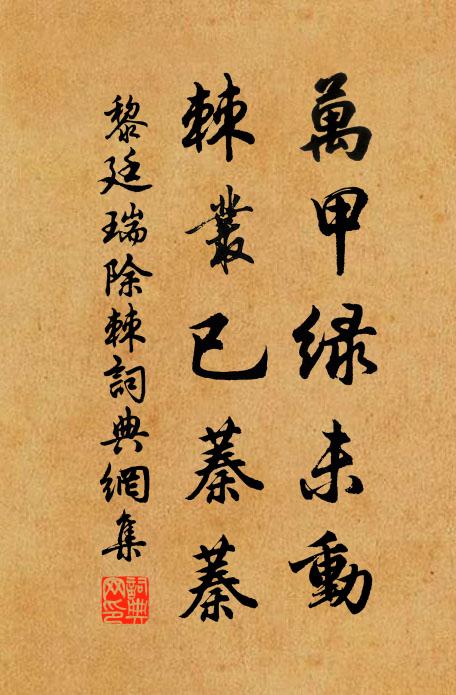 萬甲緑未動
棘叢已蓁蓁
黎廷瑞除棘詞典網集
詞典网印